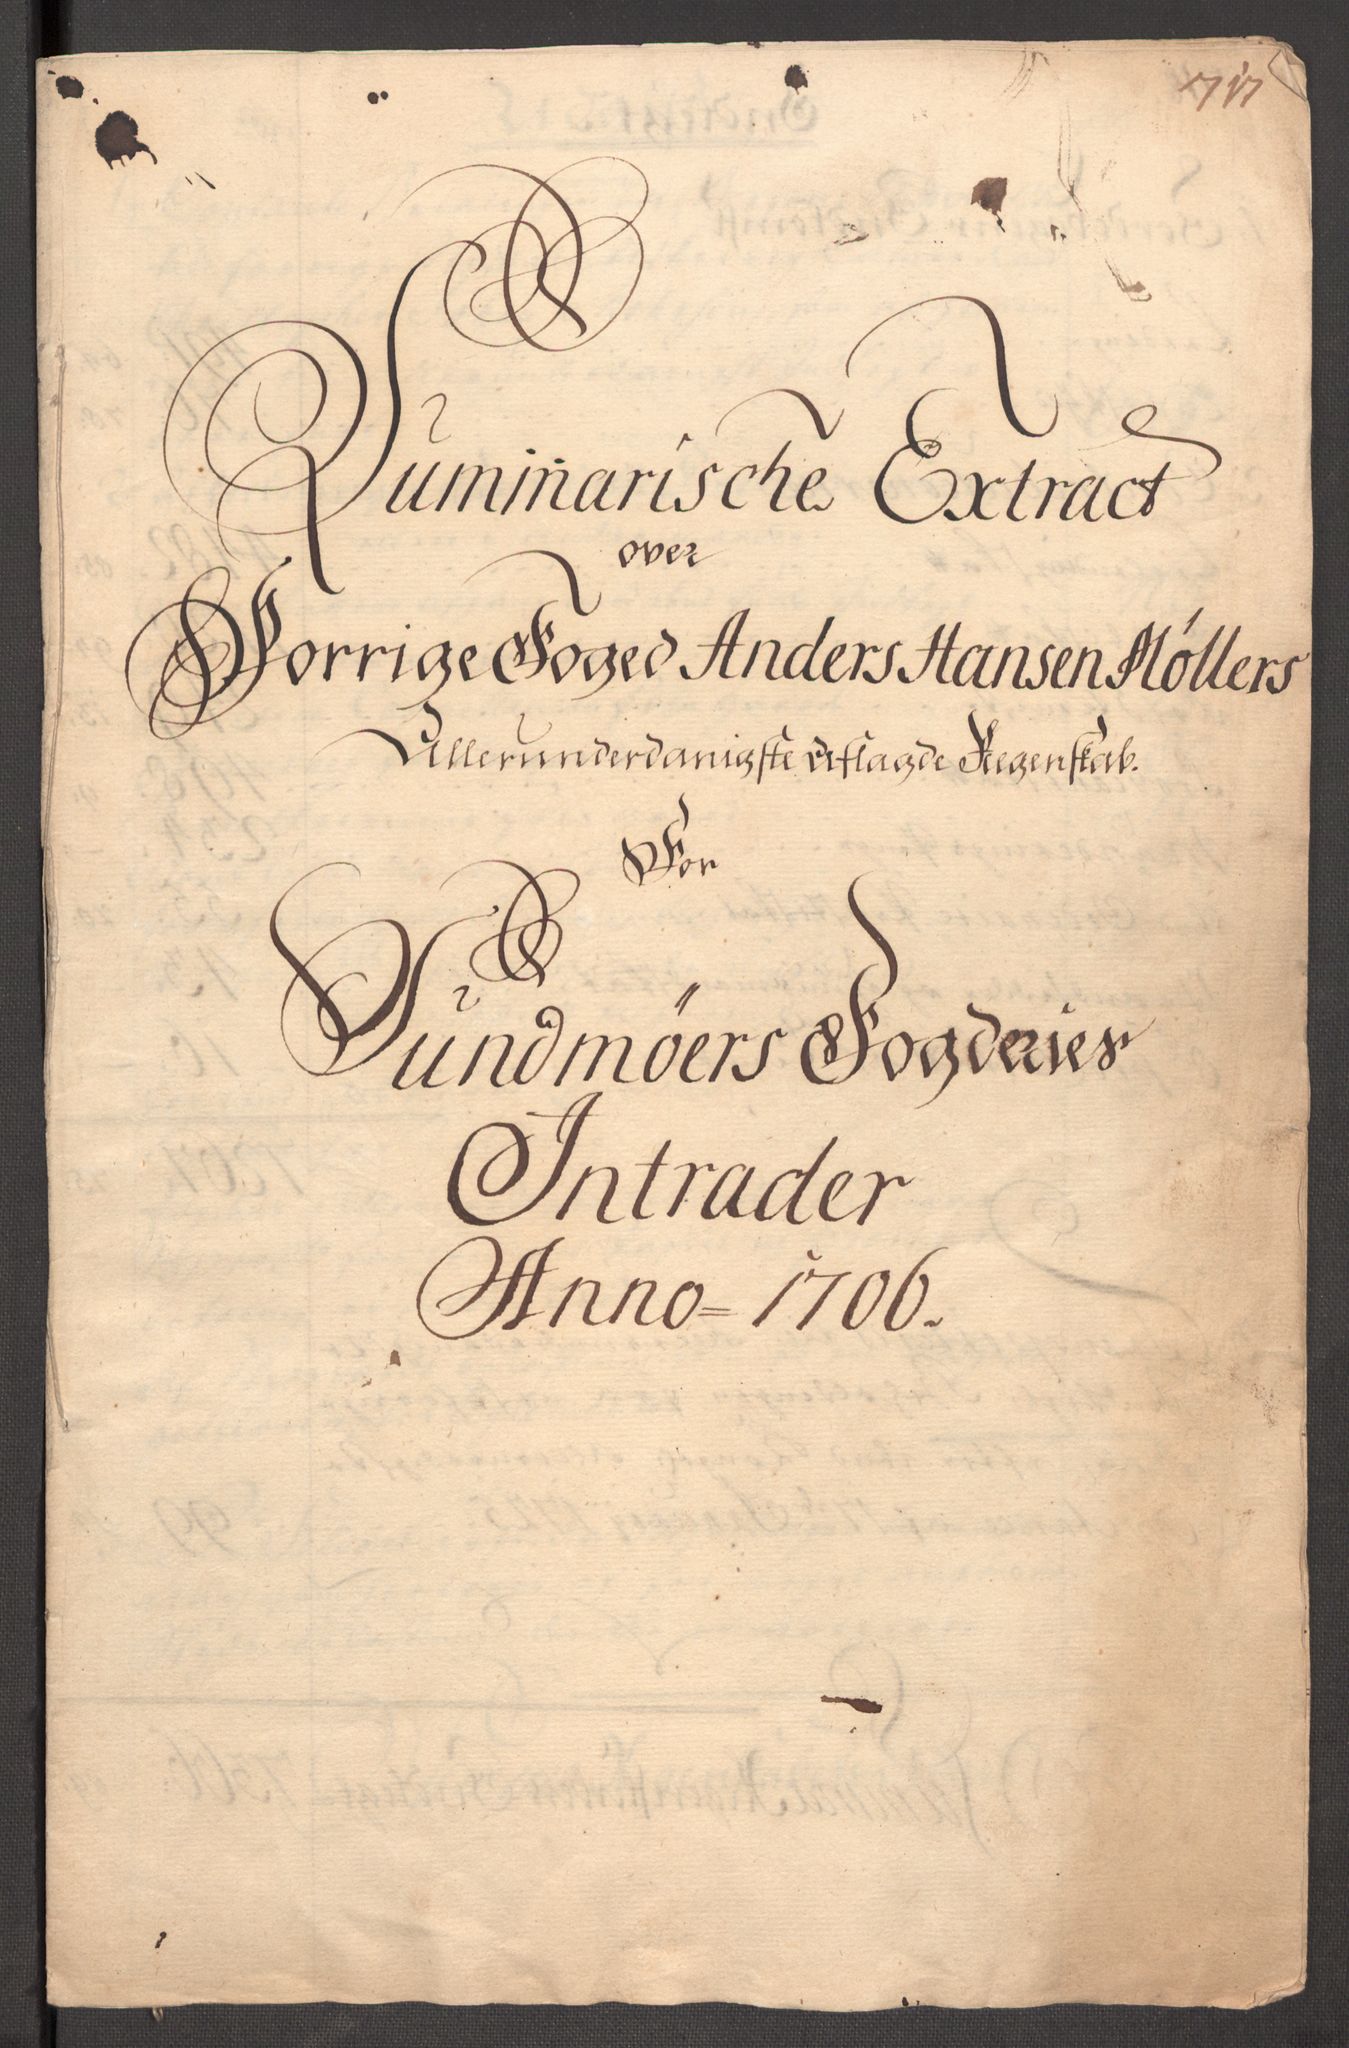 Summarische Extract
over
Forrige Foged Anders Hansen Möllers
Allerunderdanigste aflagde Regenskab.
For
Sundmöers Fogderies
Intrader
Anno = 1706.